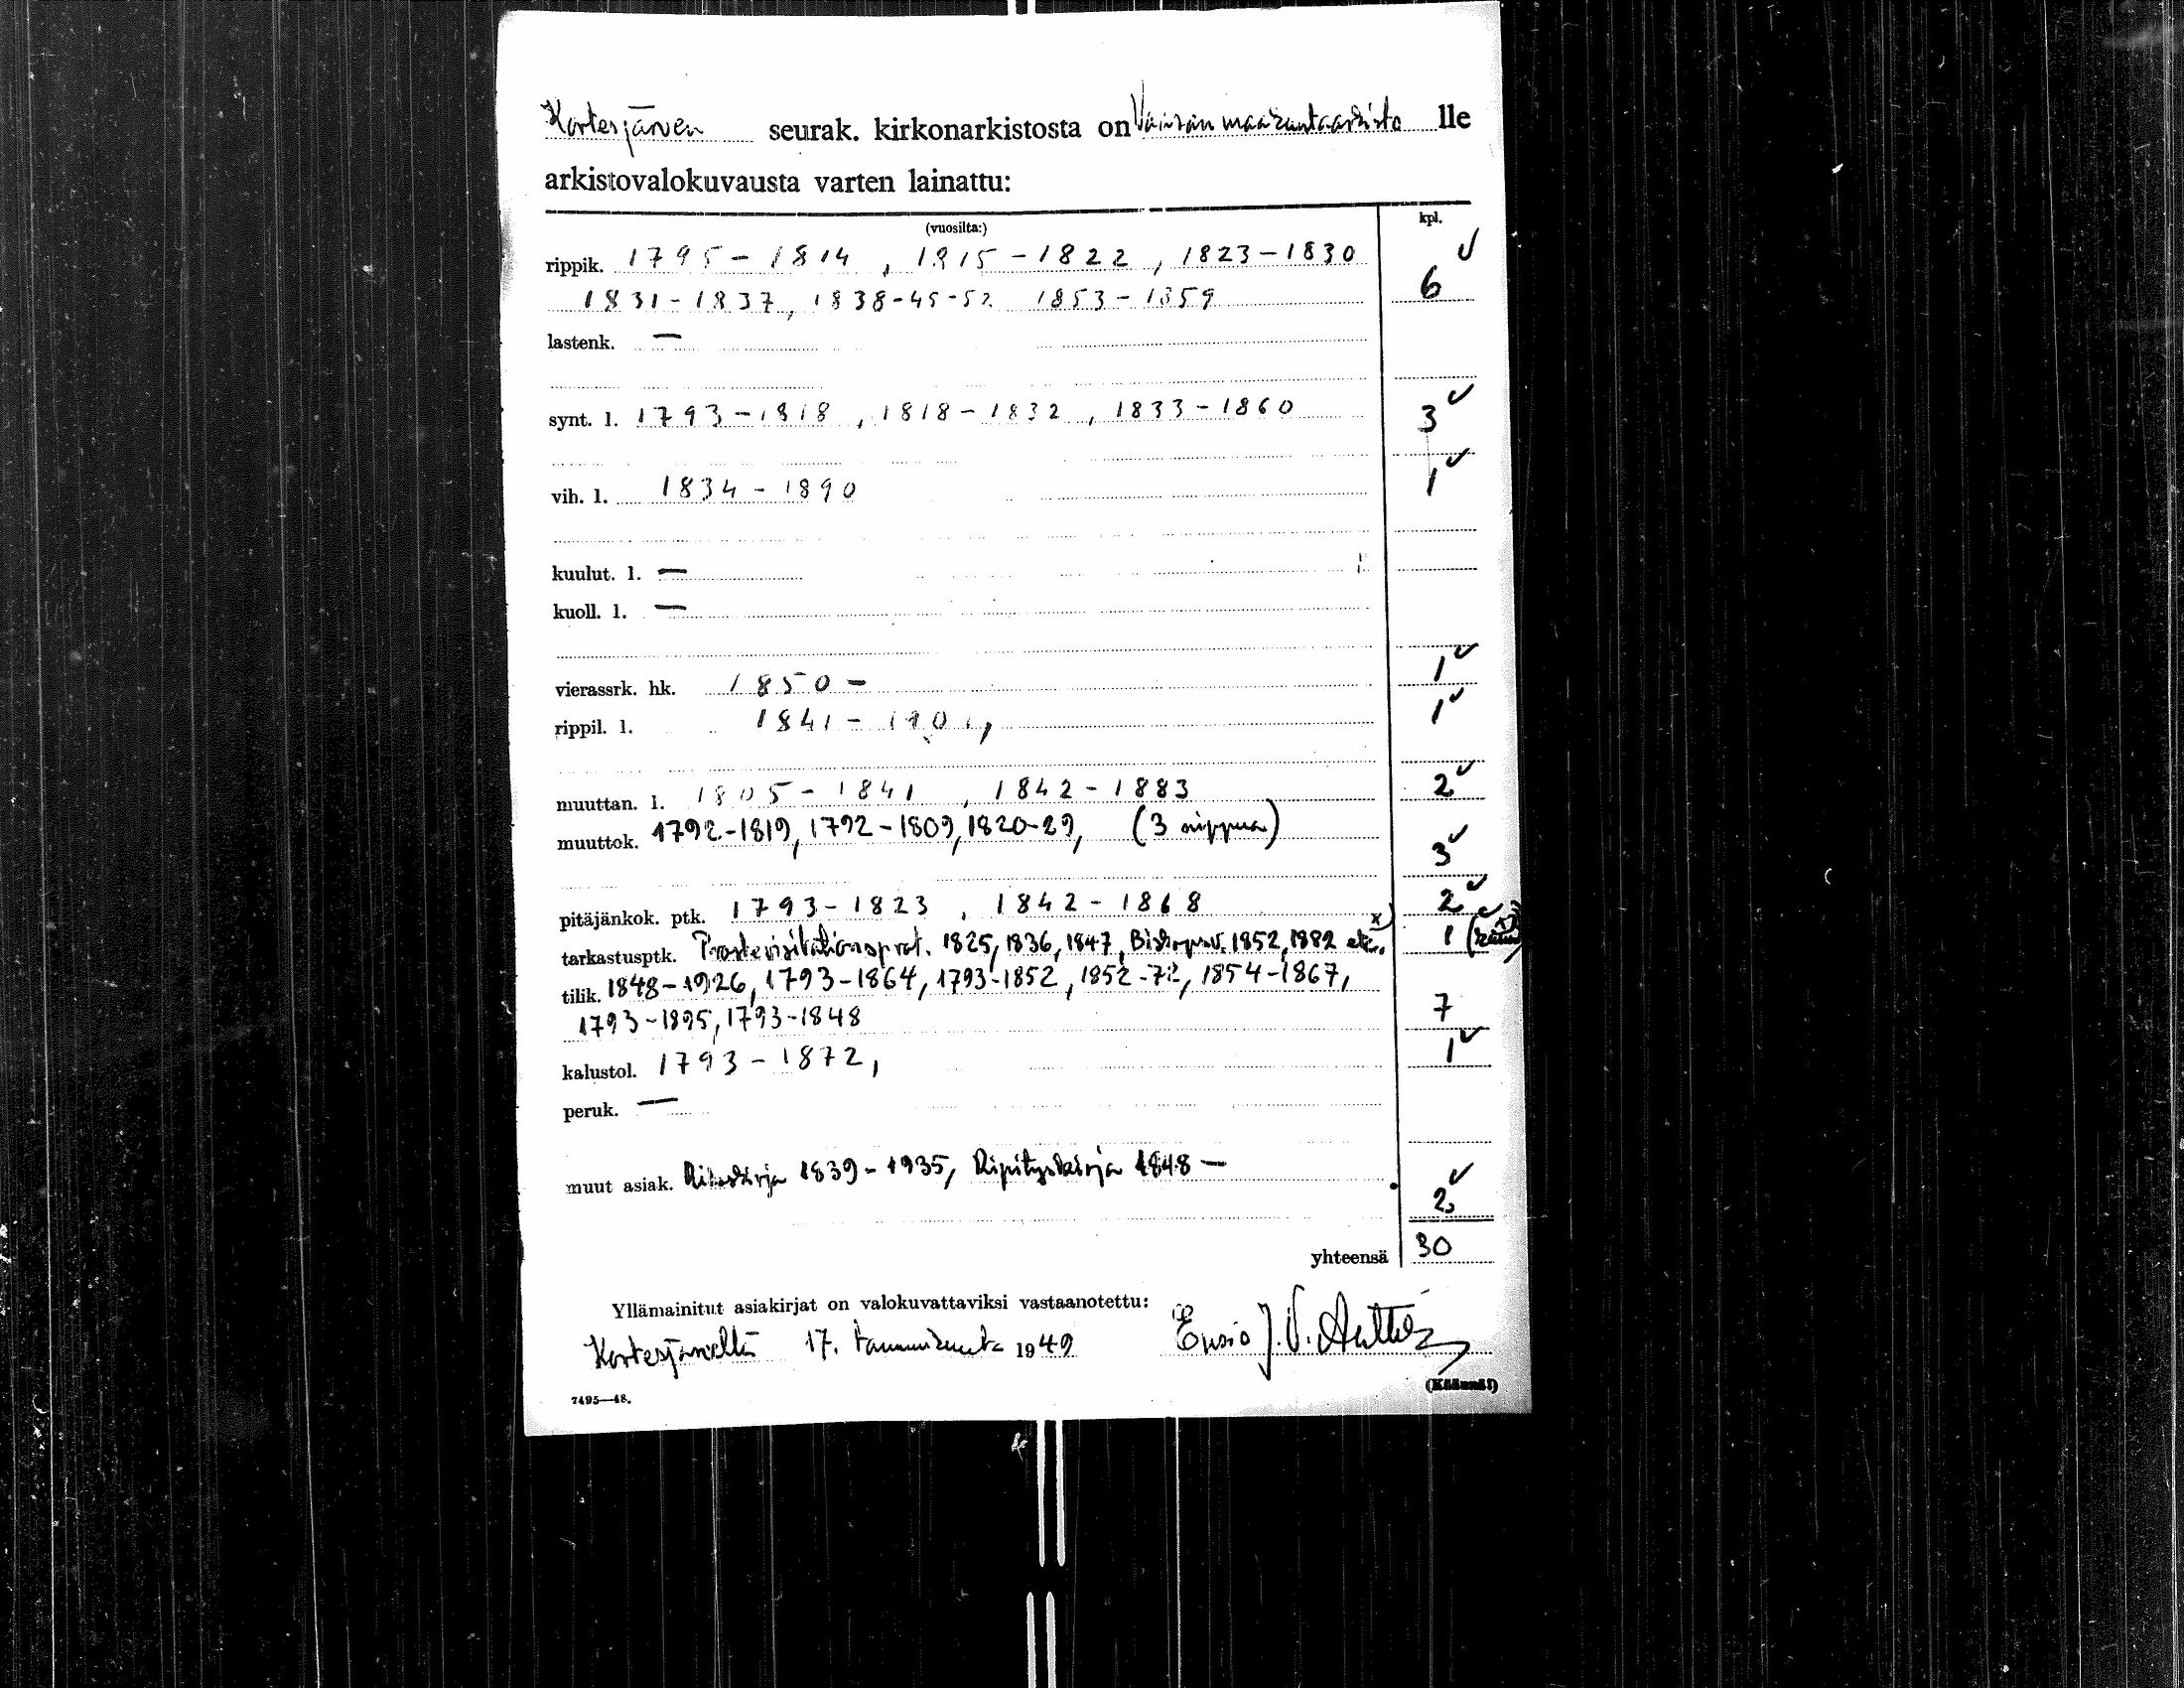 Kortesjärven seurak. kirkonarkistosta on Vaasan maakuntaarkisto lle
arkistovalokuvausta varten lainattu:
(vuosilta:) kpl.
rippik. 1795-1814, 1815-1822, 1823-1830
1831-1837, 1838-45-52 1853-1859 6
lastenk. —
synt. l. 1793-1818, 1818-1832, 1833-1860 3
vih. l. 1834-1890 1
kuulut. l. —
kuoll. l. —
vierassrk. hk. 1850 — 1
rippil. l. 1841 - 1901, 1
muuttan. l. 1805-1841, 1842-1883 2
muuttok. 1792-1819, 1792-1809, 1820-29, (3 nippua) 3
pitäjänkok. ptk. 1793-1823, 1842-1868 2
tarkastusptk. Prostevisitationsprot. 1825, 1836, 1847, Biskopsv. 1852, 1882 etc. x) 1
tilik. 1848-1926, 1793-1864, 1793-1852, 1852-72, 1854-1867,
1793-1895, 1793-1848 7
kalustol. 1793-1872, 1
peruk. —
muut asiak. 1839-1935, Ripityskirja 1848 — 2
yhteensä 30
Yllämainitut asiakirjat on valokuvattaviksi vastaanotettu:
Kortesjärvellä 17. tammikuuta 1949 Ensio J. V.
(Käännä!)
7495—48.